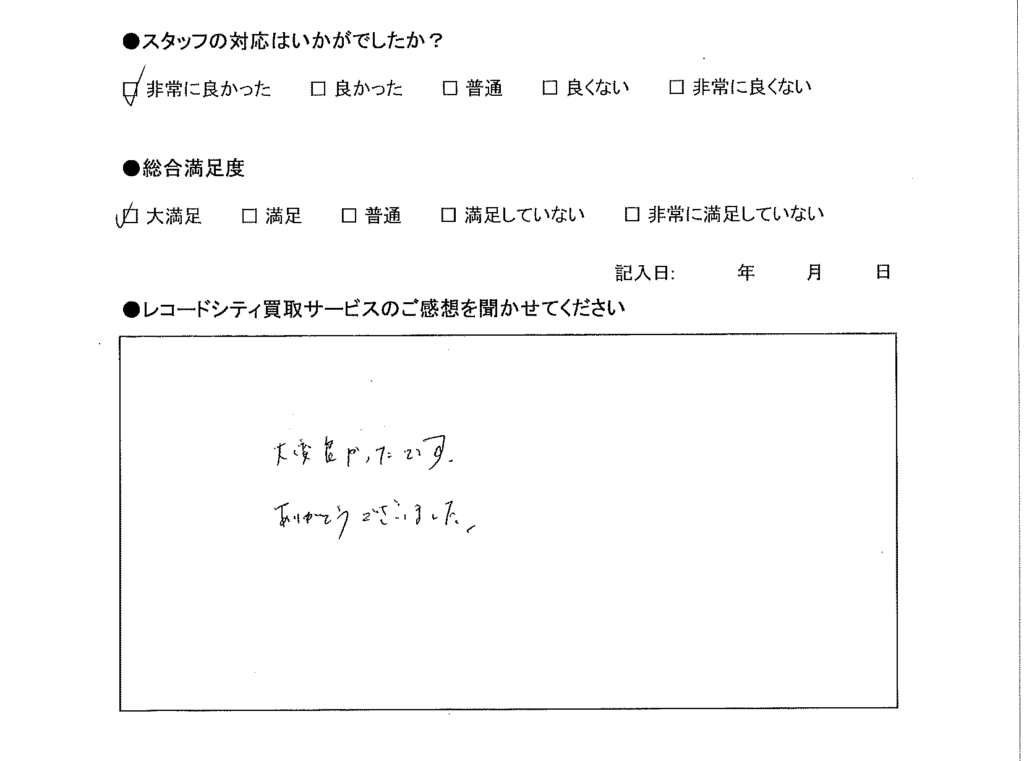 ●スタッフの対応はいかがでしたか？
☑ 非常に良かった □ 良かった □ 普通 □ 良くない □ 非常に良くない
●総合満足度
☑ 大満足 □ 満足 □ 普通 □ 満足していない □ 非常に満足していない
記入日: 年 月 日
●レコードシティ買取サービスのご感想を聞かせてください
大変良かったです.
ありがとうございました。